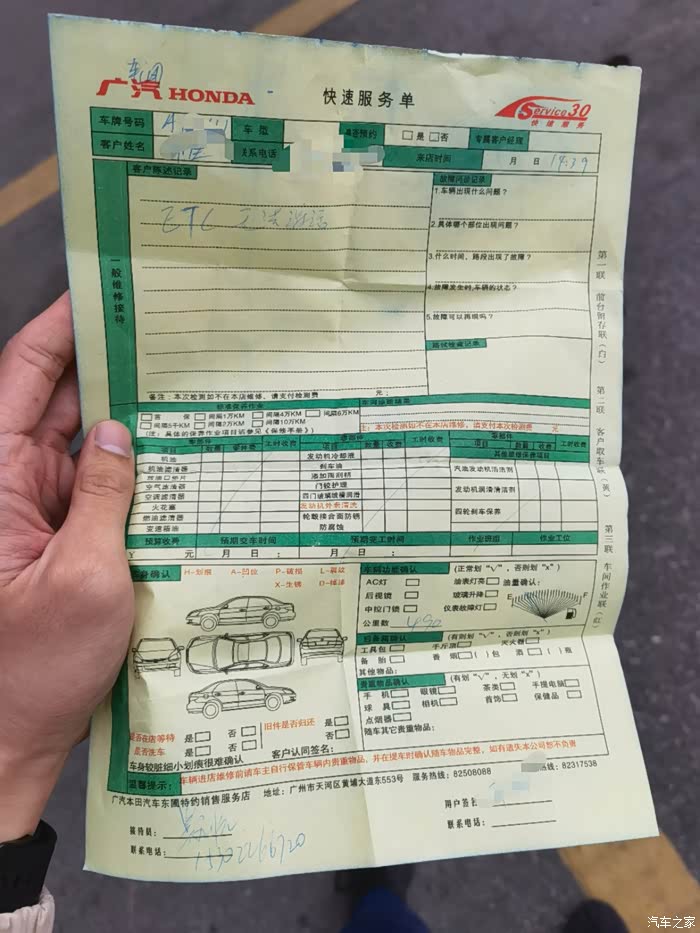 车间
广汽 HONDA
快速服务单
Service 30
快速服务
车牌号码 车型 是否预约 □是□否 专属客户经理
客户姓名 联系电话 来店时间 月 日 14:39
客户陈述记录
故障问诊记录
1.车辆出现什么问题?
ETC 无法激活
2.具体哪个部位出现问题?
3.什么时间、路段出现了故障?
4.故障发生时,车辆的状态?
5.故障可以再现吗?
路试检查记录
一般维修接待
第一联 前台留存联(白) 第二联 客户取车联(黄) 第三联 车间作业联(红)
备注:本次检测如不在本店维修,请支付检测费 元;
标准保养作业
□首 保 □间隔1万KM □间隔4万KM □间隔6万KM
□间隔5千KM □间隔2万KM □间隔10万KM
(注:具体的保养作业项目请参见《保修手册》)
注:本次检测如不在本店维修,请支付本次检测费 元
零部件 工时收费 零部件 工时收费 零部件 工时收费
项目 数量 零件费 项目 数量 项目 数量
机油 发动机冷却液 其他维修保养项目
机油滤清器 刹车油 汽油发动机清洁剂
放油口垫片 添加雨刮精
空气滤清器 门铰护理 发动机润滑清洁剂
空调滤清器 四门玻璃槽润滑
火花塞 发动机外表清洗 四轮刹车保养
燃油滤清器 轮毂接合面防锈
变速箱油 防腐蚀
预算收费 预期交车时间 预期完工时间 作业班组 作业工位
¥ 元 月 日 : 月 日 :
车身确认 H-划痕 A-凹位 P-破损
X-生锈
车辆功能确认 (正常划"√",否则划"x")
AC灯 □ 油表灯亮 □ 油量确认:
后视镜 □ 玻璃升降 □ E F
中控门锁 □ 仪表故障灯 □
公里数
行李箱确认 (有则划"√",否则划"x")
工具包 □ 千斤顶 □ 灭火器 □
备 胎 □ 香 烟 □( )包 酒 □( )瓶
其他物品:
贵重物品确认 (有划"√",无划"x")
手 机 □ 眼镜 □ 茶类 □ 手提电脑 □
球 具 □ 相机 □ 首饰 □ 保健品 □
点烟器 □
随车其它贵重物品:
是否在店等待 是□ 否□ 旧件是否归还 是□
是否洗车 是□ 否□ 否□
车身较脏细小划痕很难确认 客户认同签名:
温馨提示: 车辆进店维修前请车主自行保管车辆内贵重物品,并在提车时确认随车物品完整,如有遗失本公司恕不负责
广汽本田汽车东圃特约销售服务店 地址:广州市天河区黄埔大道东553号 服务热线:82508088 热线:82317538
接待员:
用户签名:
联系电话:
联系电话:
汽车之家